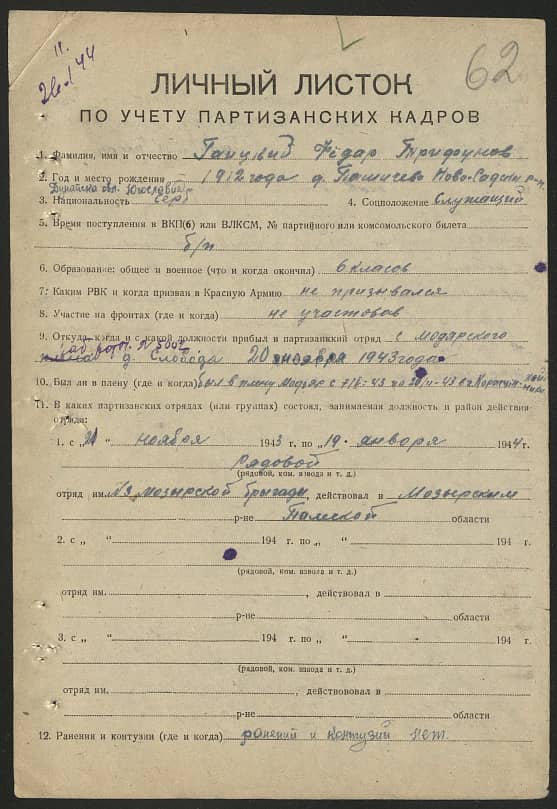 62
ЛИЧНЫЙ ЛИСТОК
ПО УЧЕТУ ПАРТИЗАНСКИХ КАДРОВ
1. Фамилия, имя и отчество Фёдар Трифунов
2. Год и место рождения 1912 года д. Пашичево Ново-Садски р-н,
обл. Югославия
3. Национальность серб 4. Соцположение Служащий
5. Время поступления в ВКП(б) или ВЛКСМ, № партийного или комсомольского билета
б/п
6. Образование: общее и военное (что и когда окончил) 6 класов
7. Каким РВК и когда призван в Красную Армию не призывался
8. Участие на фронтах (где и когда) не участовов
9. Откуда, когда и с какой должности прибыл в партизанкий отряд с модарского
плена раб. рот. № 5002 д. Слобода 20 ноября 1943 года
10. Был ли в плену (где и когда) был в плену Модяр с
11. В каких партизанских отрядах (или группах) состоял, занимаемая должность и район действия
отряда:
1. с „21“ ноября 1943 г. по „19“ января 1944 г.
Рядовой
(рядовой, ком. взвода и т. д.)
отряд им. №3 мозырской бригады, действовал в Мозырским
р-не Палеской области
2. с „ “ 194 г. по „ “ 194 г.
(рядовой, ком. взвода и т. д.)
отряд им. , действовал в
р-не области
3. с „ “ 194 г. по „ “ 194 г.
(рядовой, ком. взвода и т. д.)
отряд им. , действововал в
р-не области
12. Ранения и контузии (где и когда) ранений и контузий нет.